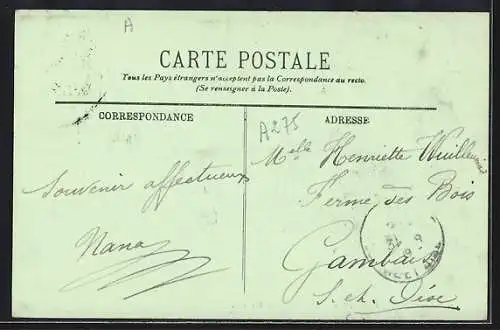 A
CARTE POSTALE
Tous les Pays étrangers n'acceptent pas la Correspondance au recto.
(Se renseigner à la Poste).
CORRESPONDANCE
ADRESSE
A275
Souvenir affectueux
Nana
Melle Henriette
Ferme des Bois
Gambais
S. et. Oise